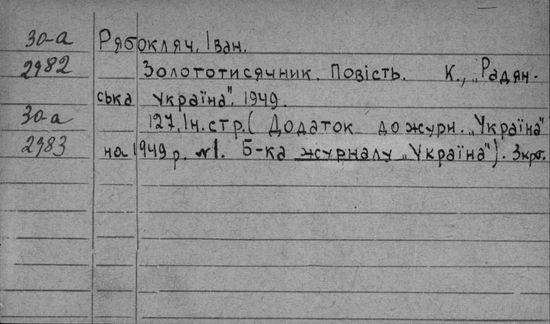 30-а Рябокляч, Іван.
2982 Золототисячник. Повість. К., „Радян-
ська Україна". 1949.
30-а 127, Ін. стр. ( Додаток до журн. „Україна"
2983 на 1949 р. №1. Б-ка журналу „Україна"). 3 крб.